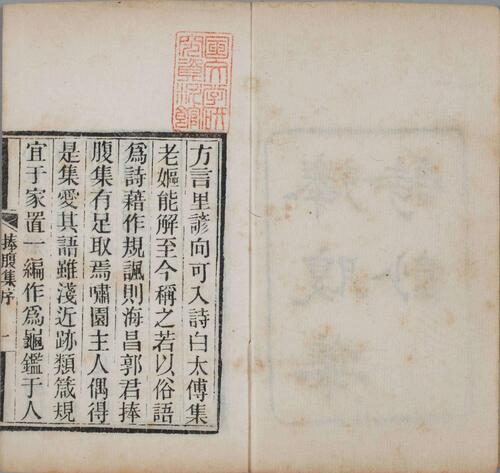 國文学研
究資料館
方言里諺向可入詩白太傅集
老嫗能解至今稱之若以俗語
爲詩藉作規諷則海昌郭君捧
腹集有足取焉嘯園主人偶得
是集愛其語雖淺近跡類箴規
宜于家置一編作爲龜鑑于人
捧腹集序 一